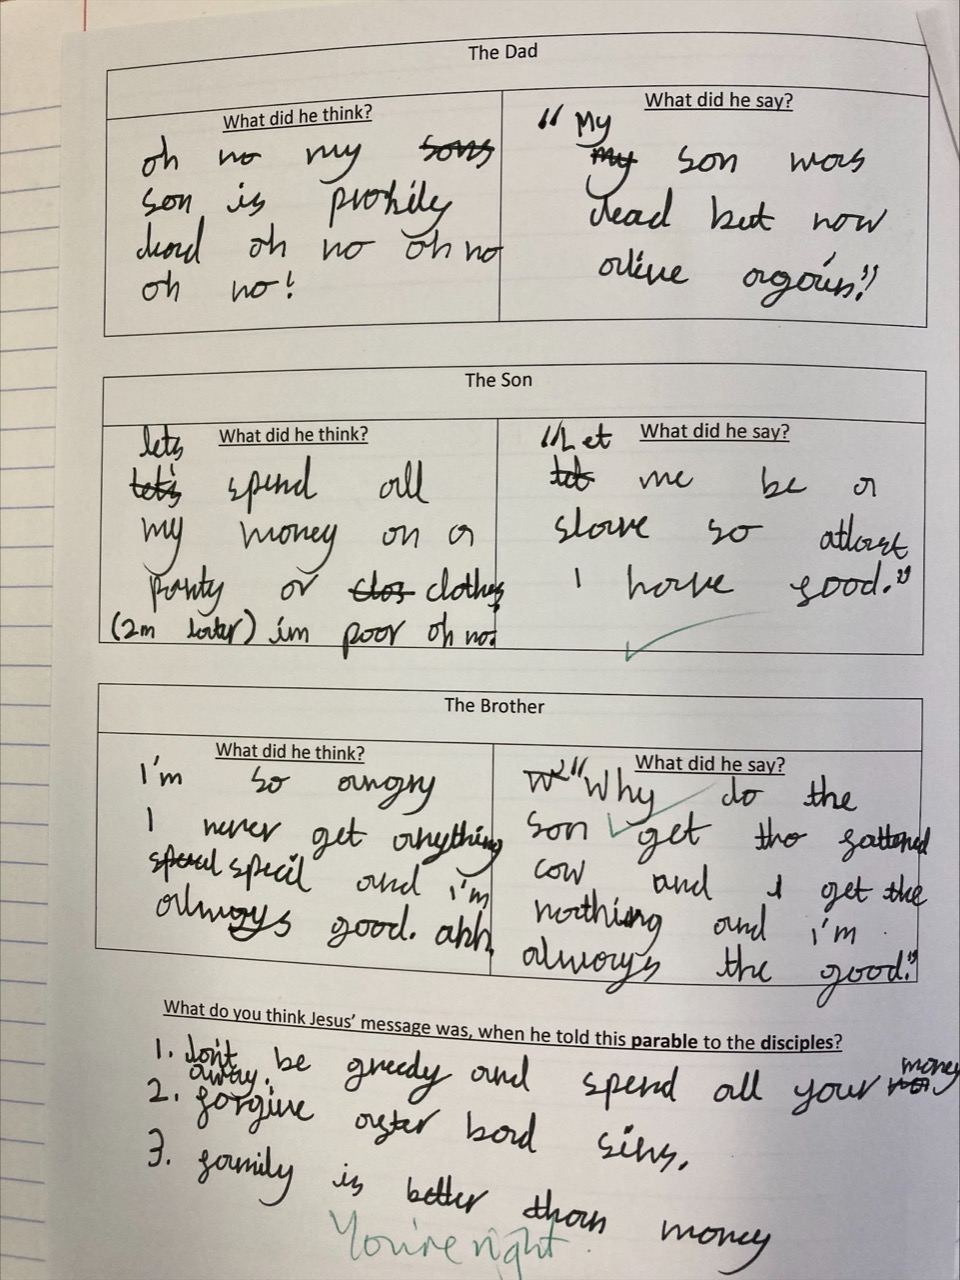 The Dad
What did he think?
oh no my sons
son is probily
dead oh no oh no
oh no!
What did he say?
"My
my son was
dead but now
alive again."
The Son
What did he think?
lets
let's spend all
my money on a
party or clos clothes
(2m later) im poor oh no.
What did he say?
"Let
let me be a
slave so atleast
I have food."
The Brother
What did he think?
I'm so angry
I never get anything
special specil and i'm
always good. ahh
What did he say?
"Why do the
son get the fattened
cow and I get the
nothing and i'm
always the good."
What do you think Jesus' message was, when he told this parable to the disciples?
1. don't be greedy and spend all your money
away.
2. forgive after bad sins.
3. family is better than money
You're right